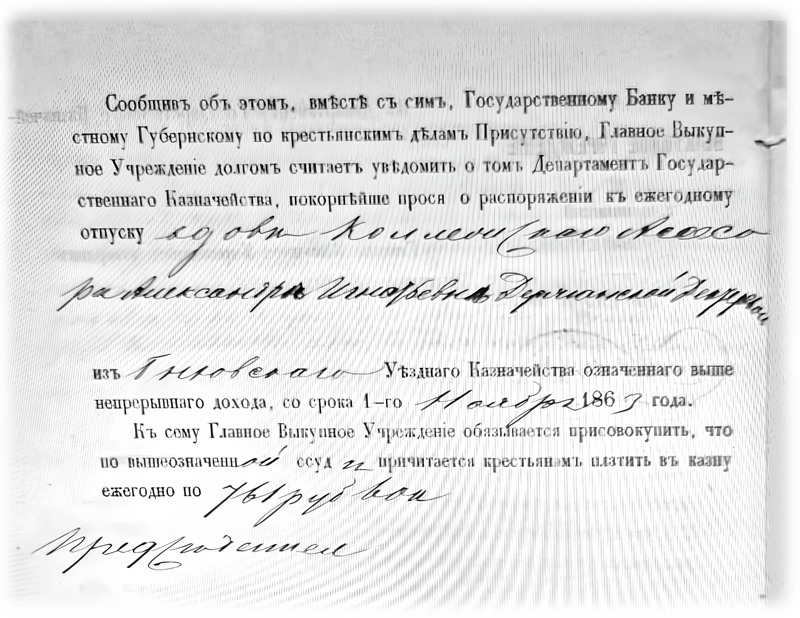 Сообщивъ объ этомъ, вмѣстѣ съ симъ, Государственному Банку и мѣ-
стному Губернскому по крестьянскимъ дѣламъ Присутствію, Главное Выкуп-
ное Учрежденіе долгомъ считаетъ увѣдомить о томъ Департаментъ Государ-
ственнаго Казначейства, покорнѣйше прося о распоряженіи къ ежегодному
отпуску вдовѣ Коллежскаго Ассесо
ра Александрѣ Игнатьевнѣ
изъ Уѣзднаго Казначейства означеннаго выше
непрерывнаго дохода, со срока 1-го Ноября 1863 года.
Къ сему Главное Выкупное Учрежденіе обязывается присовокупить, что
по вышеозначенной ссудѣ причитается крестьянамъ платить въ казну
ежегодно по 761 руб коп